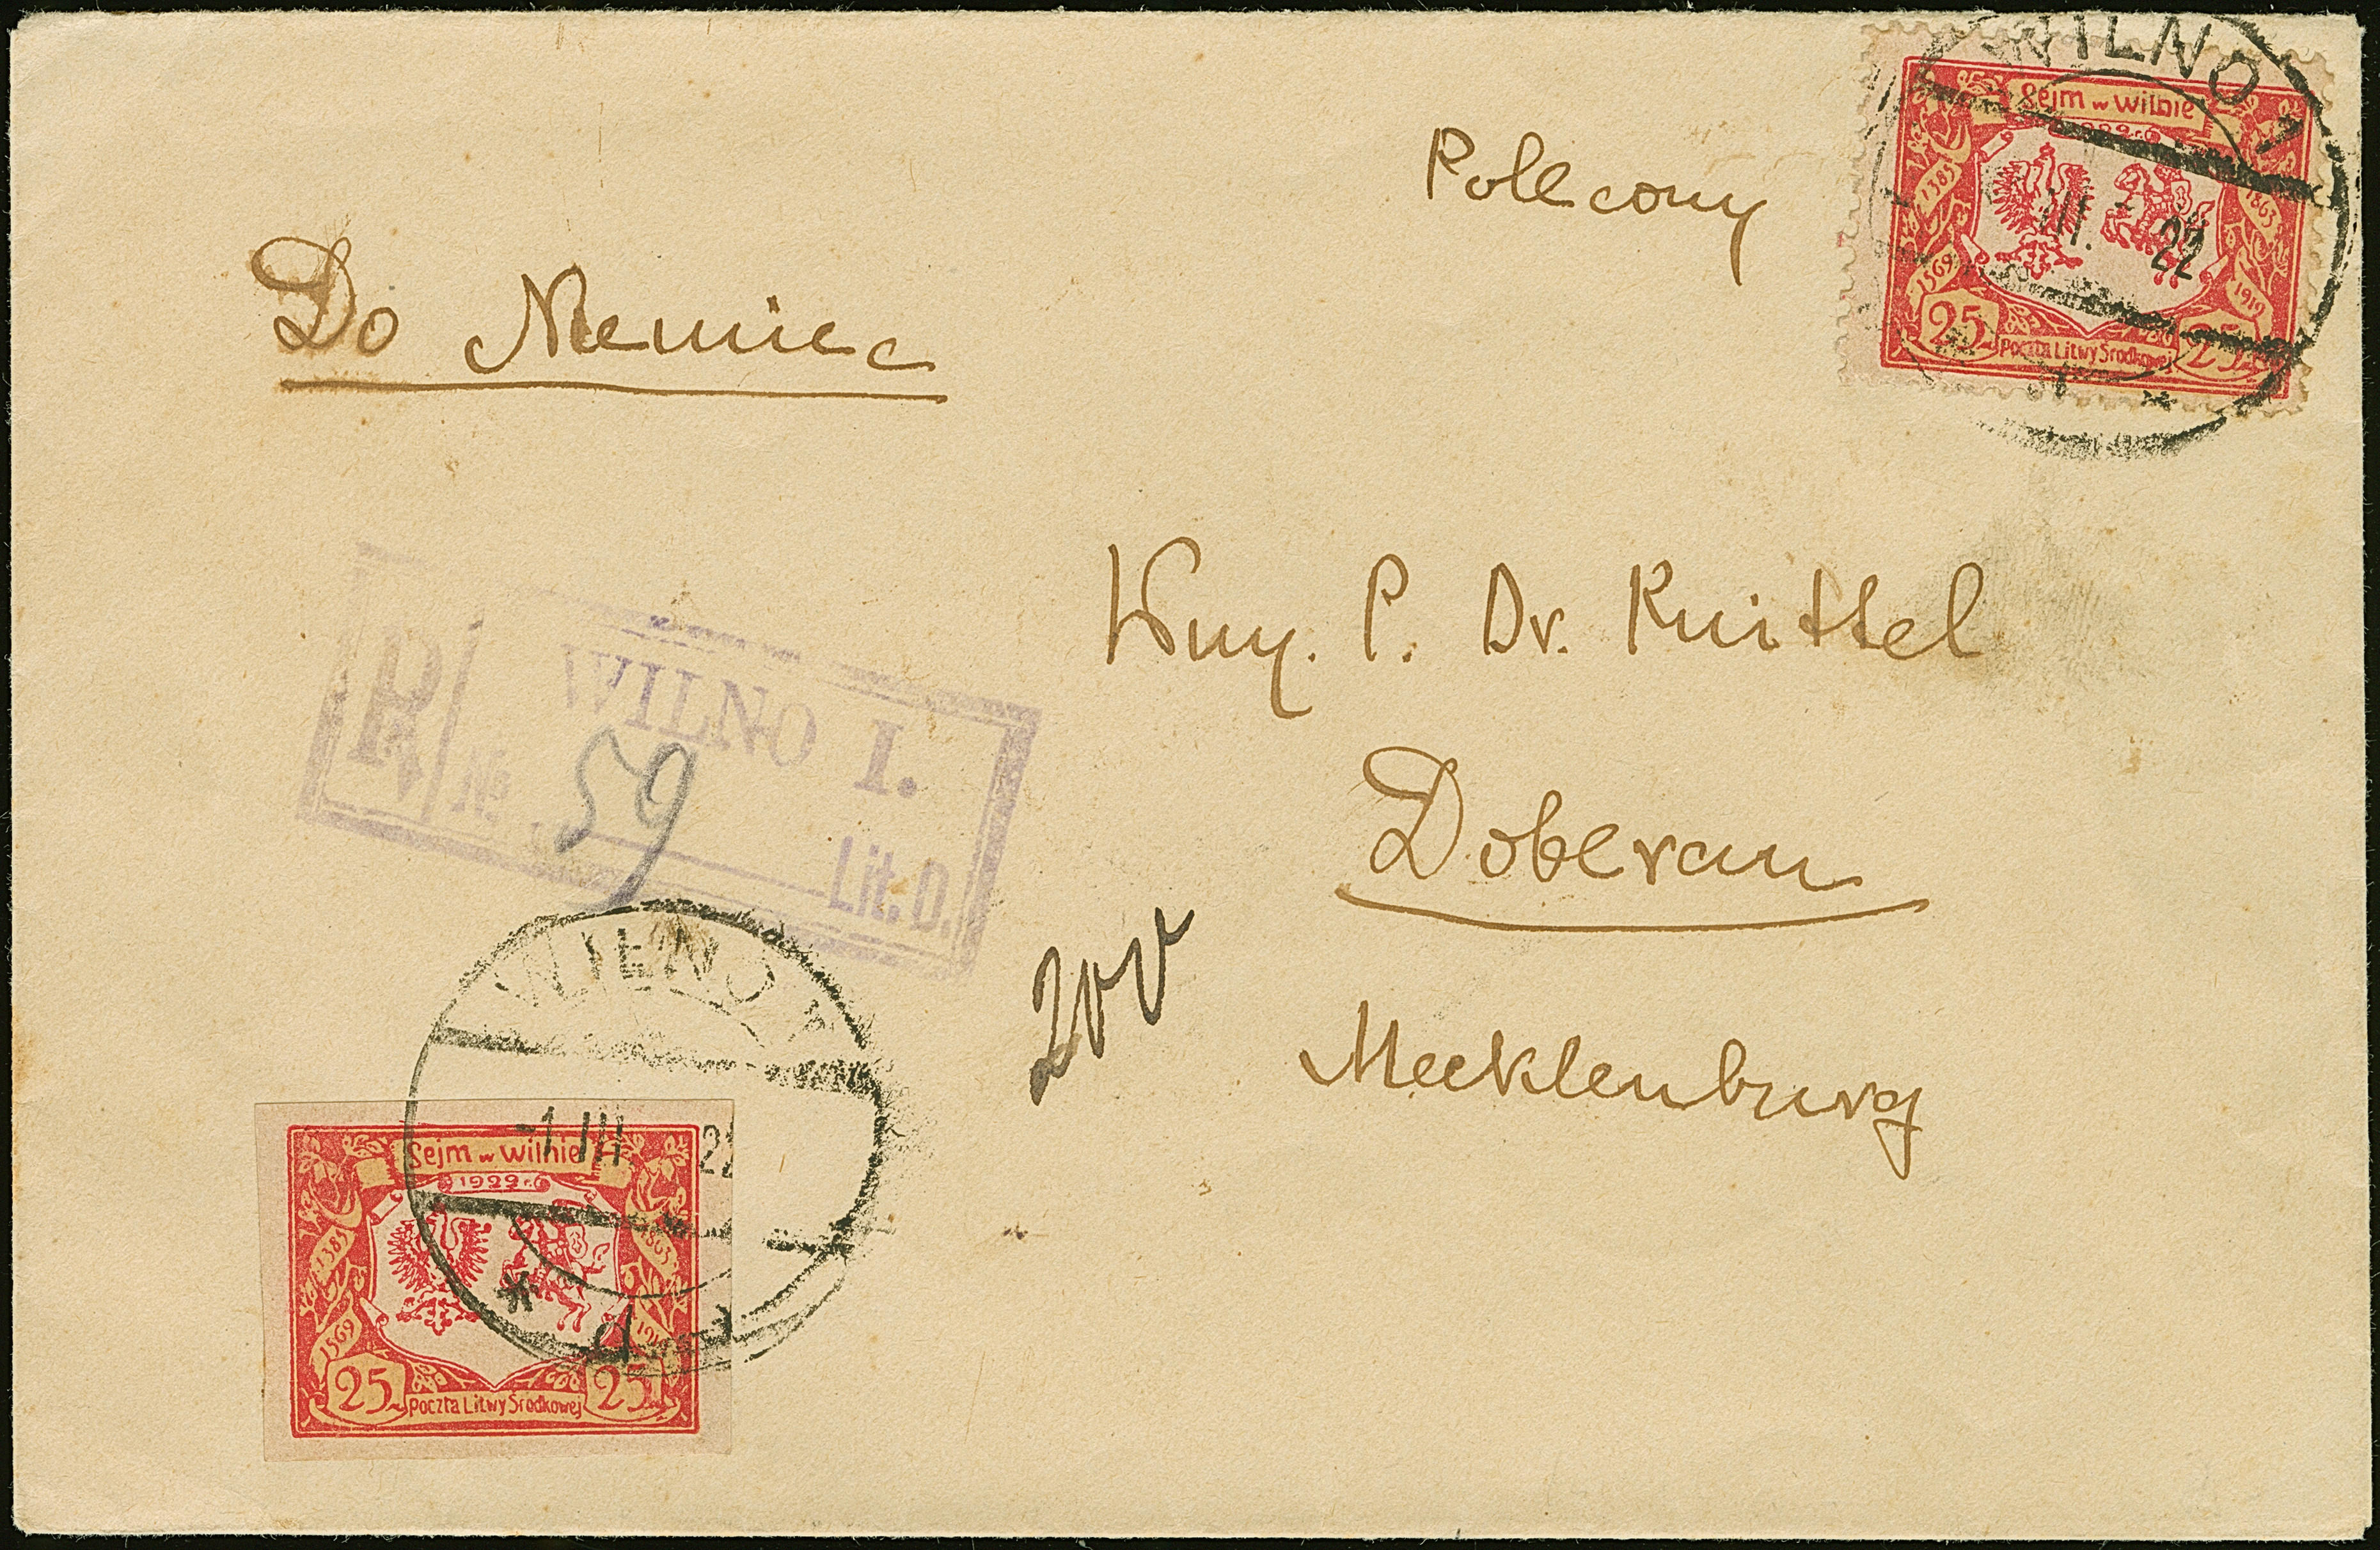 WILNO 1
Sejm w Wilnie
1922 r.
1385
1863
III. 22
1569
1919
25
25
Poczta Litwy Środkowej
Polecony
Do Niemiec
R
WILNO I.
№ 59
Lit. D.
Wny. P. Dr. Knittel
Doberan
Mecklenburg
WILNO 1
-1 III 22
* d
Sejm w Wilnie
1922 r.
1385
1863
1569
1919
25
25
Poczta Litwy Środkowej